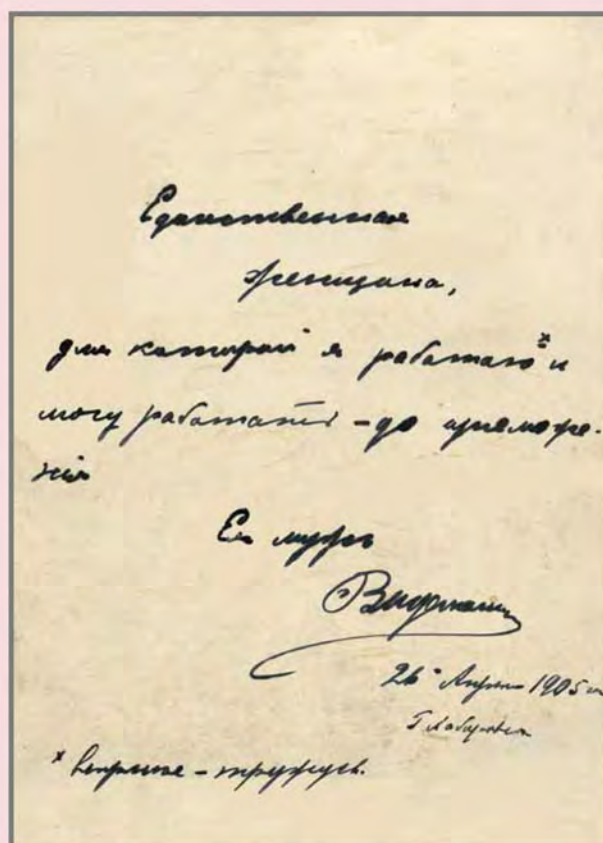 Единственная
женщина,
для которой я работаю* и
могу работать – до изнеможе-
нія
Ея мужъ
26 Апреля 1905 г.
г. Хабаровск
* вернее – тружусь.